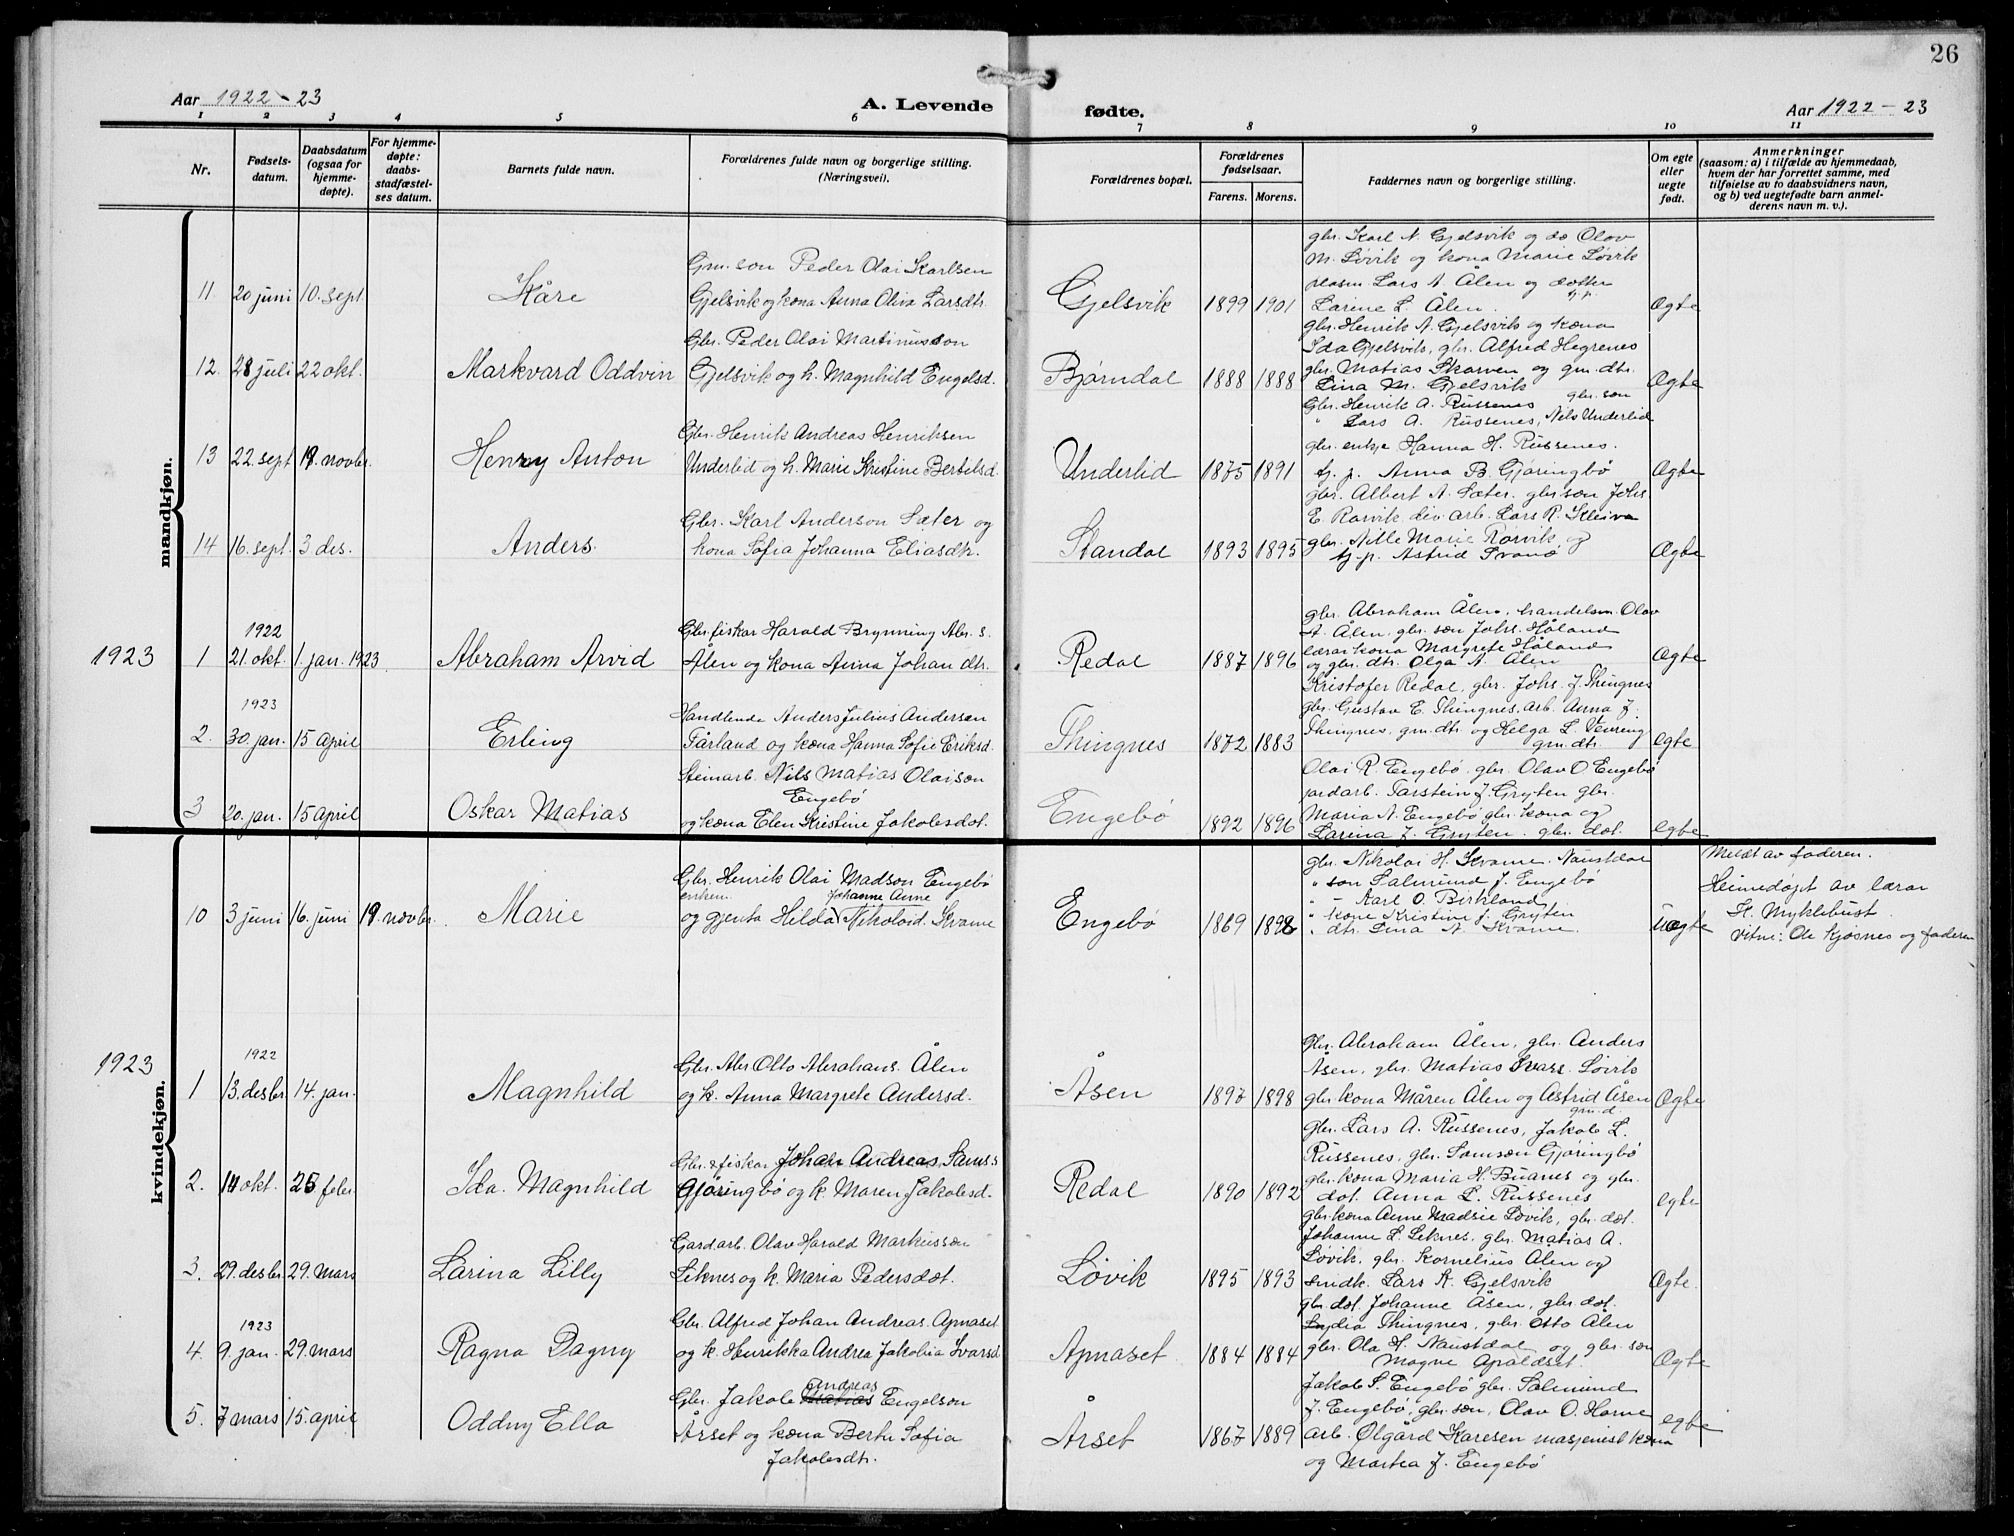 26
Aar 1922-23
A. Levende
fødte.
Aar 1922-23
1 2 3 4 5 6 7 8 9 10 11
Nr.
Fødsels-
datum.
Daabsdatum
(ogsaa for
hjemme-
døpte).
For hjemme-
døpte:
daabs-
stadfæstel-
ses datum.
Barnets fulde navn.
Forældrenes fulde navn og borgerlige stilling.
(Næringsvei).
Forældrenes bopæl.
Forældrenes
fødselsaar.
Farens. Morens.
Faddernes navn og borgerlige stilling.
Om egte
eller
uegte
født.
Anmerkninger
(saasom: a) i tilfælde av hjemmedaab,
hvem der har forrettet samme, med
tilføielse av to daabsvidners navn,
og b) ved uegtefødte barn anmel-
derens navn m. v.).
mandkjøn.
11 20 juni 10. sept. Kåre
Gm. son Peder Olai Karlsen
Gjelsvik og kona Anna Oliva Larsdtr.
Gjelsvik 1899 1901
gbr. Karl N. Gjelsvik og do Olav
M. Løvik og kona Marie Løvik
Lars A. Ålen og dotter
Larine L. Ålen.
Ægte
12. 28 juli 22 okt. Markvard Oddvin
Gbr. Peder Olai Martinusson
Gjelsvik og h. Magnhild Engelsd.
Bjørndal 1888 1888
gbr. Henrik A. Gjelsvik og kona
Ida Gjelsvik, gbr. Alfred Hegrenes
gbr. Matias Skorven og gm. dtr.
Lina M. Gjelsvik
Ægte
13 22. sept 19. novbr. Henry Anton
Gbr. Henrik Andreas Henriksen
Underlid og h. Marie Kristine Bertelsd.
Underlid 1875 1891
Gbr. Henrik A. Russenes gbr. søn
" Lars A. Russenes, Nils Underlid
gbr. enkje Hanna H. Russenes.
tj. p. Anna B Gjøringbø
Ægte
14 16. sept. 3 des. Anders.
Gbr. Karl Anderson Sæter og
kona Sofia Johanna Eliasdtr.
Standal 1893 1895
gbr. Albert A. Sæter. gbr son Johs
E Rørvik div. arb. Lars R. Kleiva
gbr. Nille Marie Rørvik og
tj. p. Astrid Svanø
Ægte
1923
1922
1 21. okt. 1 jan. 1923 Abraham Arvid
Gbr. fiskar Harald Brynning Abr. s.
Ålen og kona Anna Johan dtr.
Redal 1887 1896
gbr. Abraham Ålen, handelsm. Olav
A. Ålen, gbr. søn Johs. Håland
lærarkona Margrete Håland
og gbr. dtr. Olga A. Ålen
Ægte
1923
2. 30. jan. 15 April Erling
Handlende Anders Julius Andersen
Tårland og kona Hanna Sofie Eriksd.
Thingnes 1872 1883
Kristofer Redal, gbr. Johs. J. Thingnes
gbr. Gustav E. Thingnes, arb. Anna J.
Thingnes, gm. dtr. og Helga L. Vevring
gm. dtr.
egte
3 20. jan. 15 April Oskar Matias
Steinarb. Nils Matias Olaison
Engebø
og kona Elen Kristine Jakobsdot.
Engebø 1892 1896
Olai R. Engebø. gbr. Olav O Engebø
jordarb. Torstein J. Gryten gbr.
Maria A. Engebø gbr. kona og
Larina J. Gryten. gbr. dot.
egte
kvindekjøn.
10 3 juni 16. juni 19. novbr. Marie
Gbr. Henrik Olai Madson Engebø
enkem. Johanne Anne
og gjenta Hilda Nikolaid. Kvame
Engebø 1869 1898
gbr. Nikolai H. Kvame. Naustdal
" son Salmund J. Engebø
" - Karl O. Birkland
" kone Kristine J. Gryten
" dtr. Lina N. Kvame.
Uegte
Meldt av faderen.
Heimedøpt av lærar
H. Myklebust.
vitne: Ole Kjøsnes og faderen
1923
1922
1 13. desbr. 14. jan. Magnhild
Gbr. Abr Otto Abrahams. Ålen
og k. Anna Margrete Andersd.
Åsen 1897 1898
Gbr. Abraham Ålen, gbr. Anders
Åsen, gbr. Matias Løvik
gbr kona Måren Ålen og Astrid Åsen
gm. d.
Ægte
2. 14 okt. 25 febr. Ida. Magnhild
Gbr. & fiskar Johan Andreas Sams. s
Gjøringbø og k. Maren Jakobsd.
Redal 1890 1892
gbr. Lars A. Russenes, Jakob L.
Russenes, gbr. Samson Gjøringbø
gbr. kona Maria H. Buanes og gbr.
dot. Anna L. Russenes
egte
3. 29. desbr. 29. mars Larina Lilly
Gardarb. Olav Harald Markusson
Leknes og k. Maria Pedersdot.
Løvik 1895 1893
gbr. kona Anne Madsie Løvik, gbr. dot.
Johanne L. Leknes, gbr. Matias A.
Løvik, gbr. Kornelius Ålen og
smidk. Lars K. Gjelsvik
Ægte.
1923
4. 9. jan. 29. mars Ragna Dagny
Gbr. Alfred Johan Andreas. Apnaset
og k. Henrikka Andrea Jakobia Ivarsd
Apnaset 1884 1884
gbr. dot. Johanne Åsen, gbr. dot.
Lydia Thingnes, gbr. Otto Ålen
gbr. Ola H. Naustdal og gbr. søn
Magne Apaldset.
Ægte
5. 7 mars 15. april Oddny Ella
Gbr. Jakob Andreas Engelson
Årset og kona Berte Sofia
Jakobsdtr.
Årset 1867 1889
Jakob S. Engebø gbr. Salmund
J. Engebø, gbr. son, Olav O. Horne
arb. Ølgård Karesen masjenist kona
og Martha J. Engebø
egte